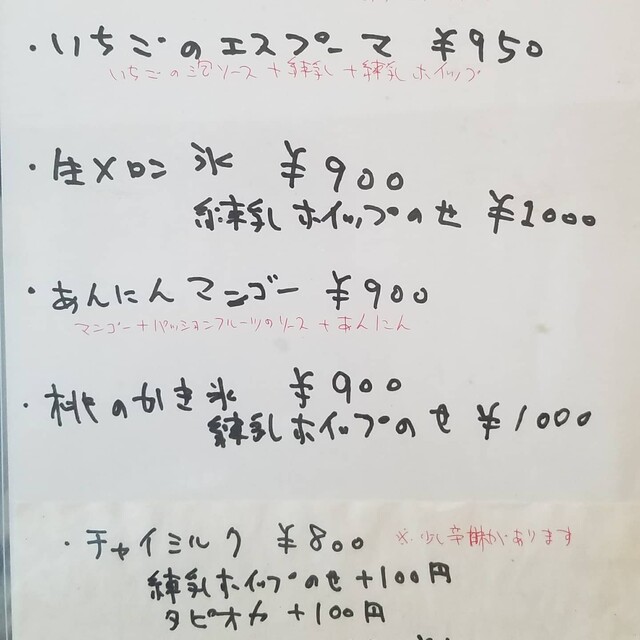 ・いちごのエスプーマ ¥950
いちごの泡ソース+練乳+練乳ホイップ
・生メロン氷 ¥900
練乳ホイップのせ ¥1000
・あんにんマンゴー ¥900
マンゴー+パッションフルーツのソース+あんにん
・桃のかき氷 ¥900
練乳ホイップのせ ¥1000
・チャイミルク ¥800 ※少し辛味があります
練乳ホイップのせ +100円
タピオカ +100円